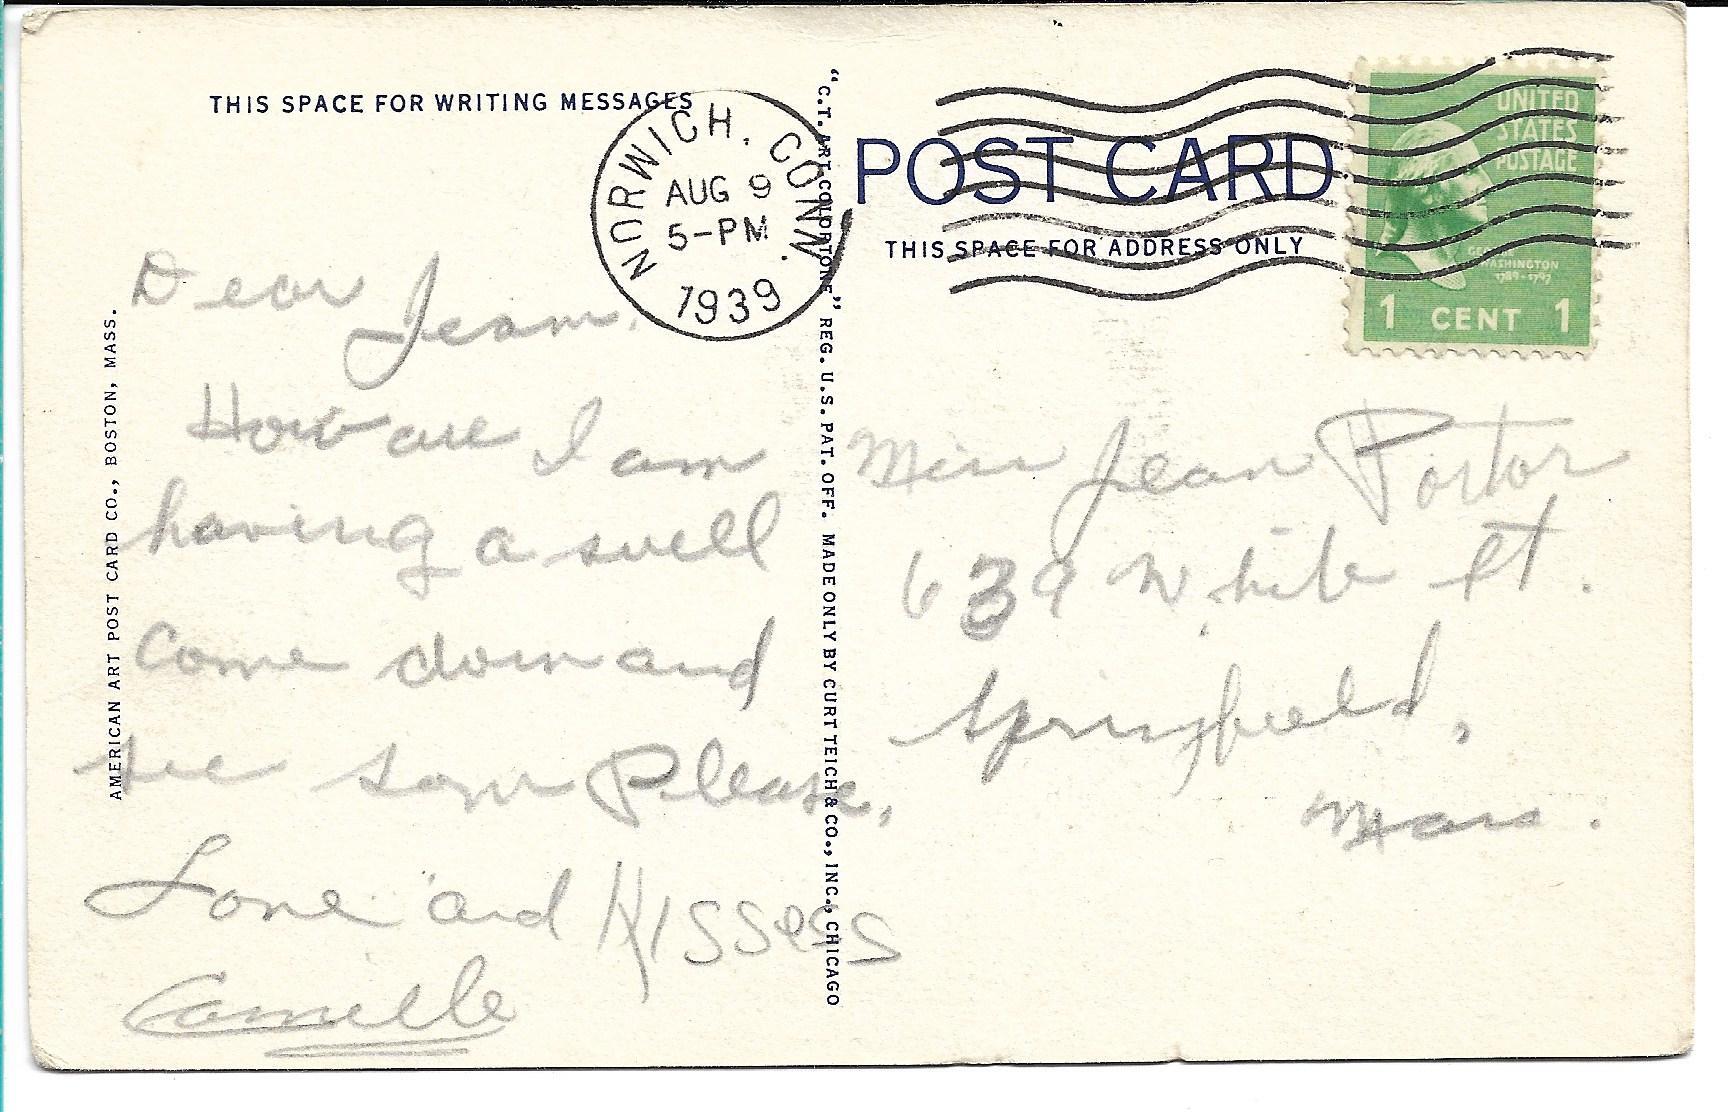 THIS SPACE FOR WRITING MESSAGES
NORWICH, CONN.
AUG 9
5-PM
1939
Dear Jean,
How are I am
having a swell
Come down and
see som Please,
Love and Kisses
Camille
AMERICAN ART POST CARD CO., BOSTON, MASS.
"C.T. ART-COLORTONE" REG. U.S. PAT. OFF. MADE ONLY BY CURT TEICH & CO., INC., CHICAGO
POST CARD
THIS SPACE FOR ADDRESS ONLY
UNITED
STATES
POSTAGE
GEORGE
WASHINGTON
1789-1797
1 CENT 1
Miss Jean Portor
639 White St.
Springfield,
Mass.